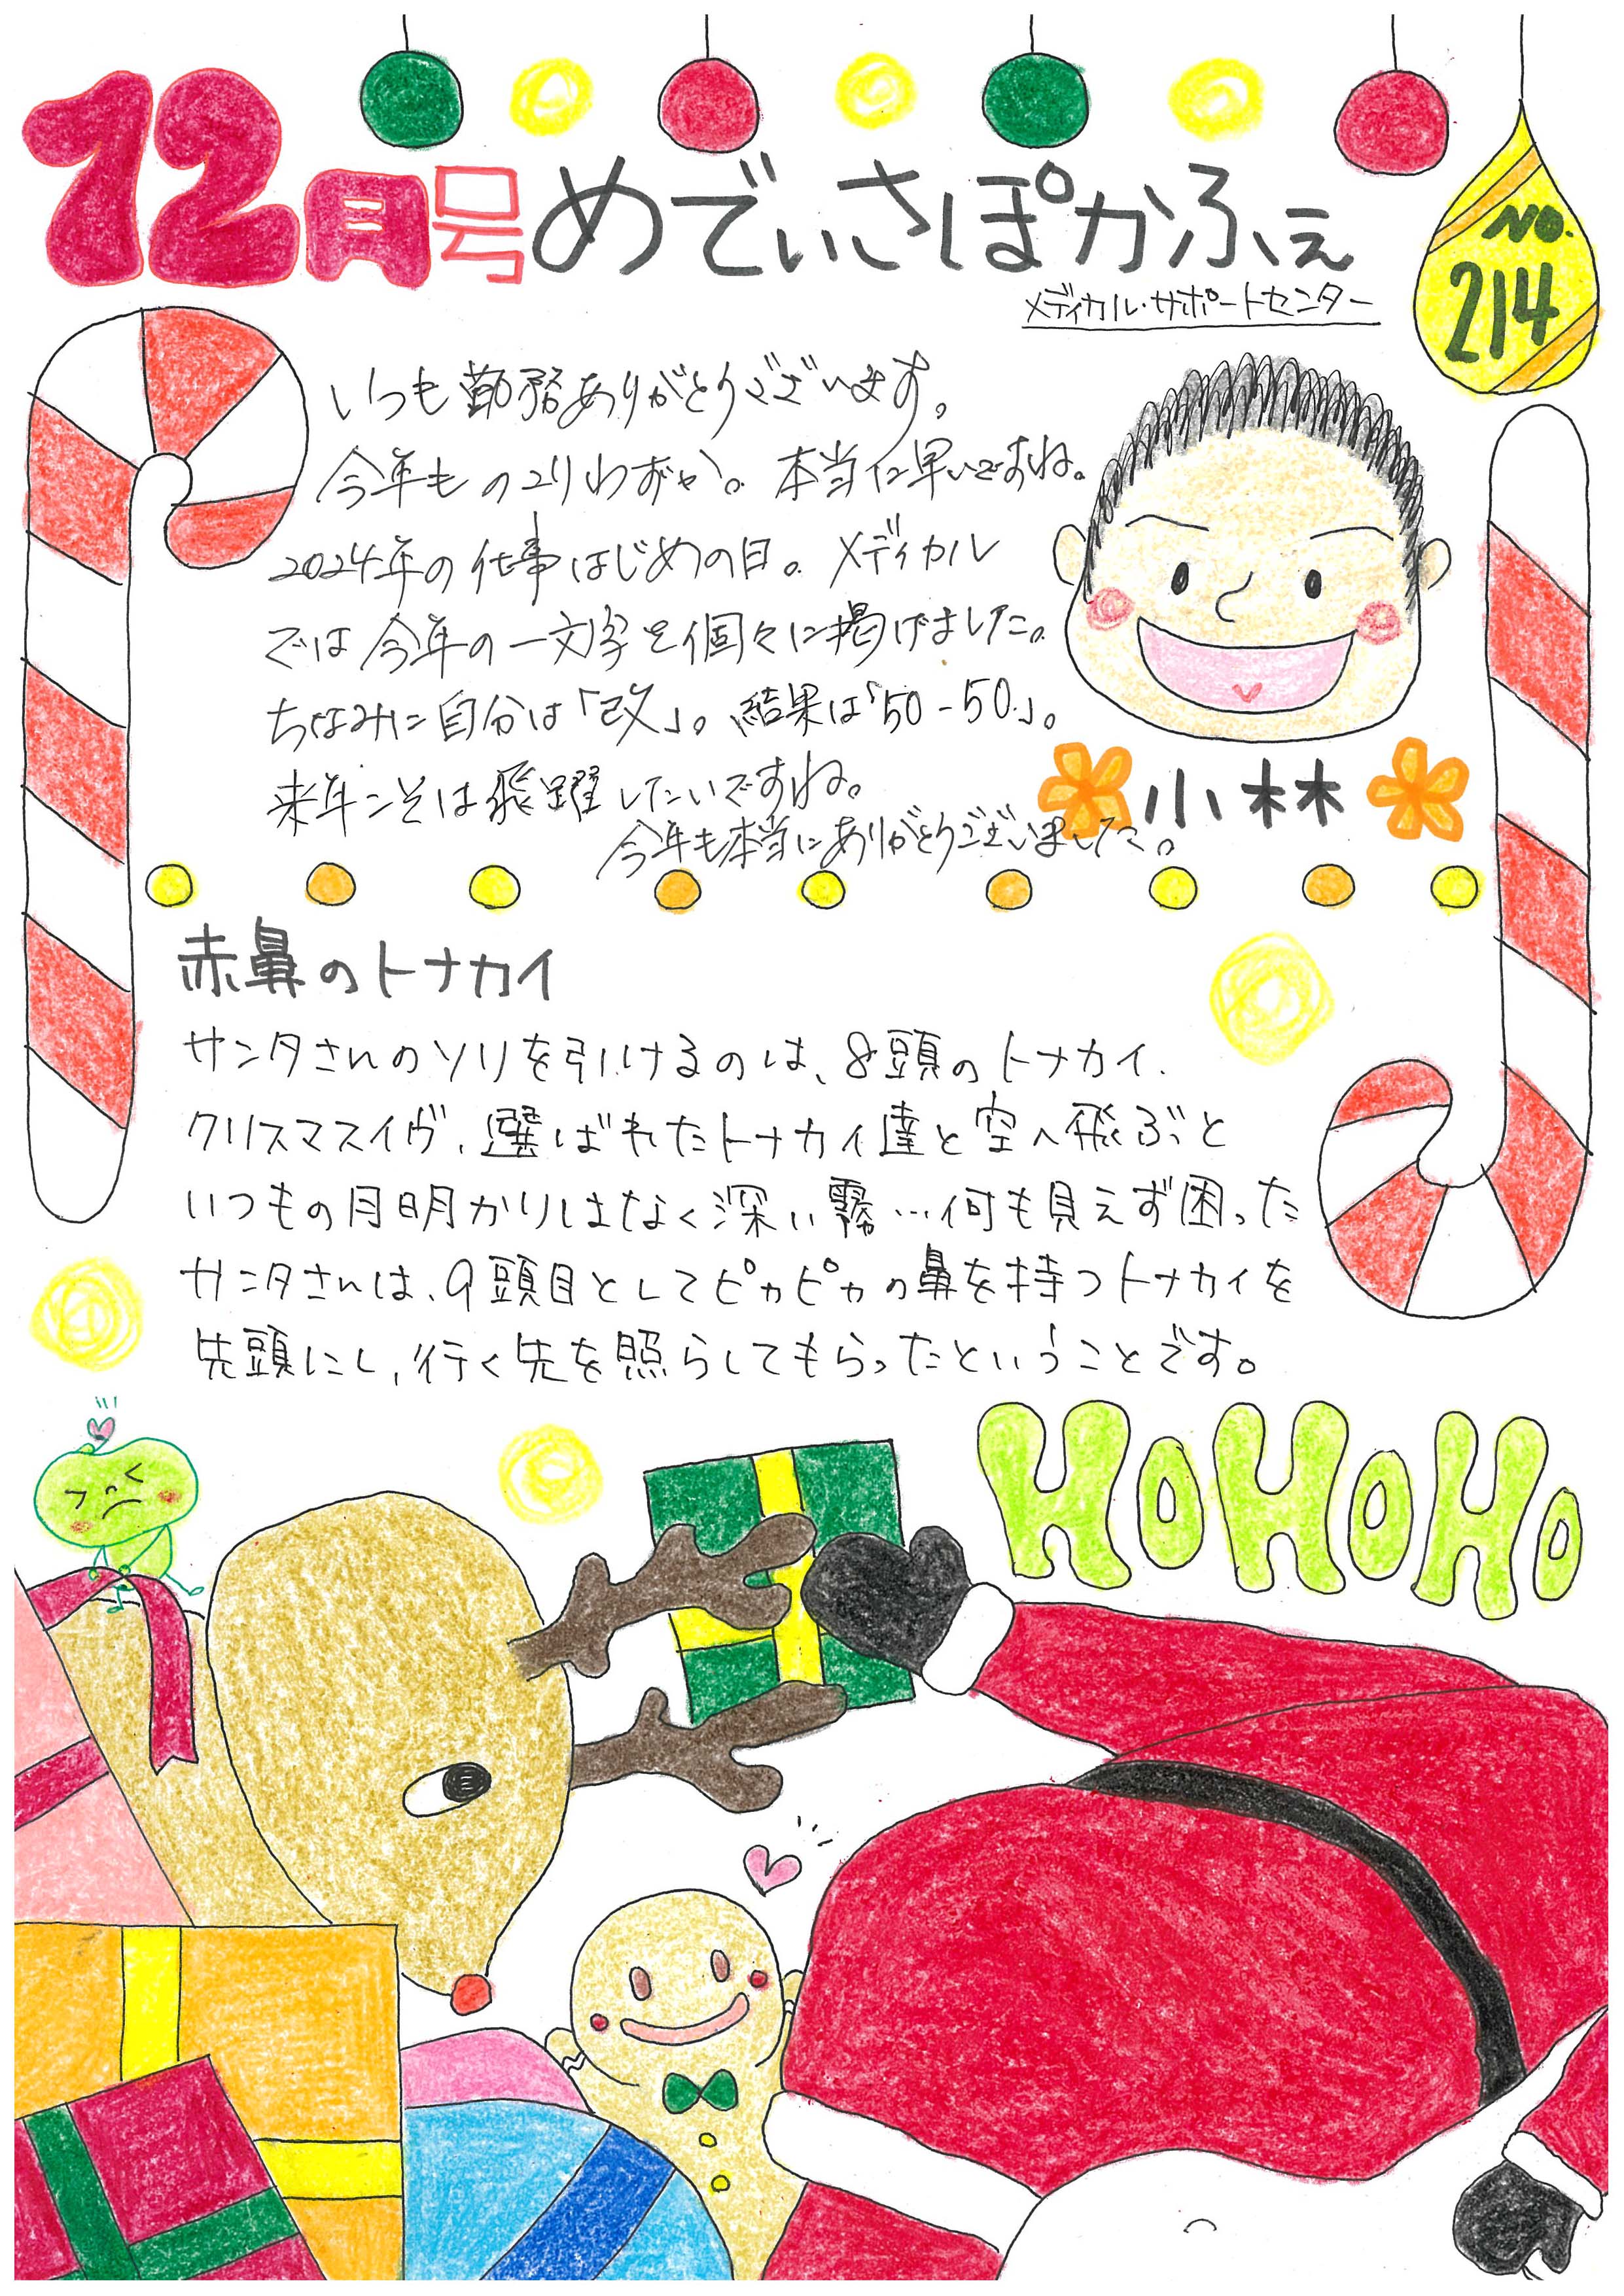 12月号めでぃさぽかふぇ
No.
214
メディカル・サポートセンター
いつも勤務ありがとうございます。
今年ものこりわずか。本当に早いですね。
2024年の仕事はじめの日。メディカル
では今年の一文字を個々に掲げました。
ちなみに自分は「改」。結果は「50-50」。
来年こそは飛躍したいですね。
今年も本当にありがとうございました。
小林
赤鼻のトナカイ
サンタさんのソリを引けるのは、8頭のトナカイ.
クリスマスイヴ、選ばれたトナカイ達と空へ飛ぶと
いつもの月明かりはなく深い霧…何も見えず困った
サンタさんは、9頭目としてピカピカの鼻を持つトナカイを
先頭にし、行く先を照らしてもらったということです。
HoHoHo